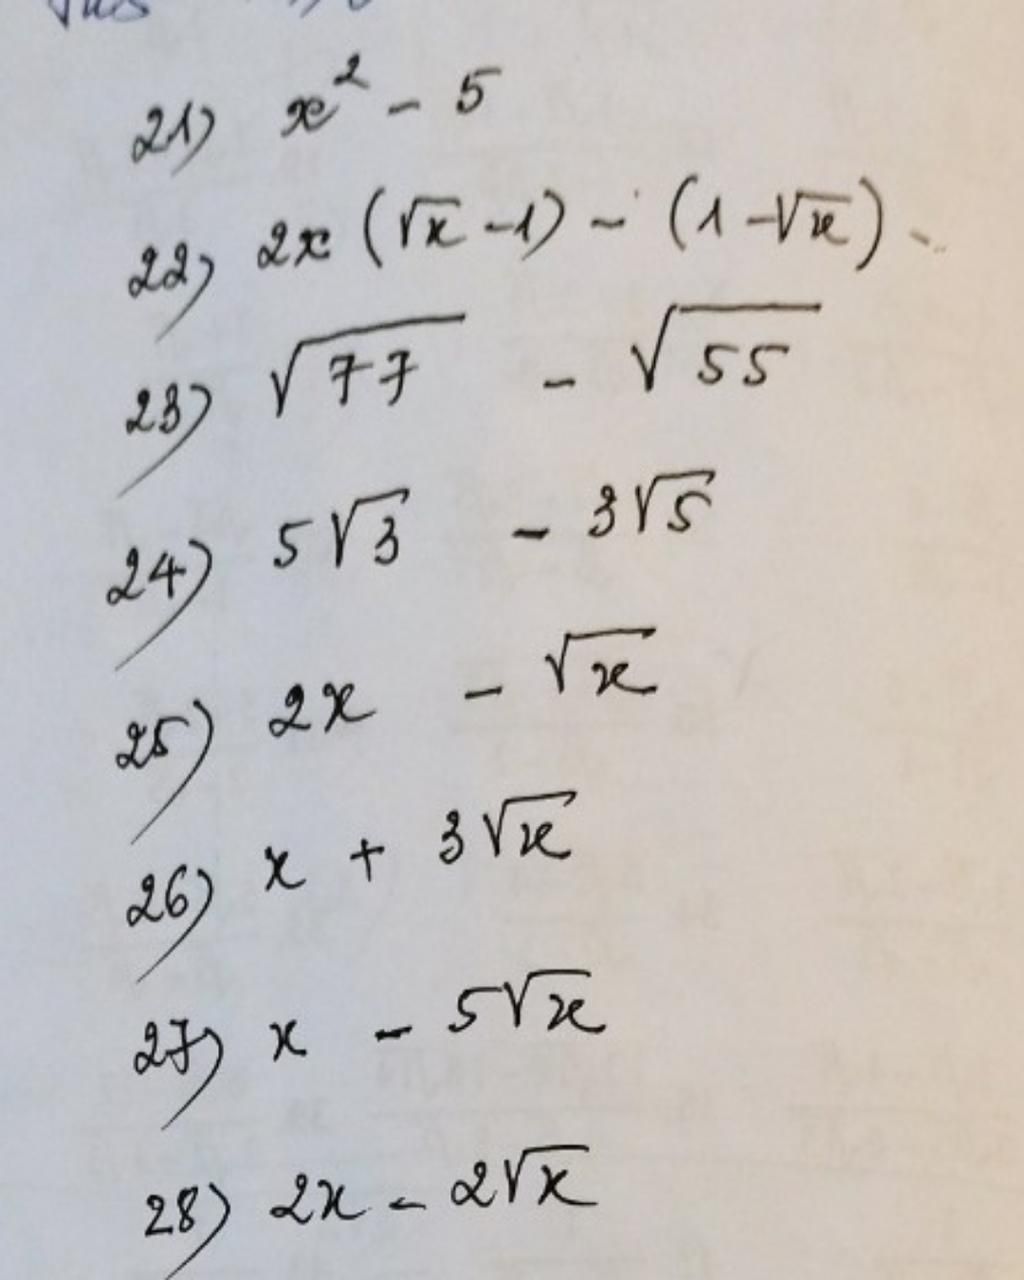 21) x² - 5
22) 2x (√x - 1) - (1 - √x)
23) √77 - √55
24) 5√3 - 3√5
25) 2x - √x
26) x + 3√x
27) x - 5√x
28) 2x - 2√x